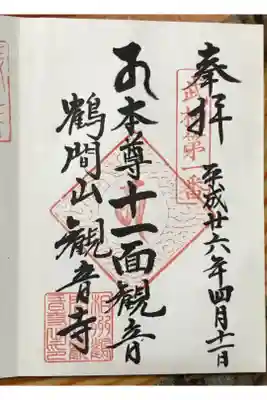 奉拝
武相第一番
平成廿六年四月十一日
御本尊十一面観音
鶴間山観音寺